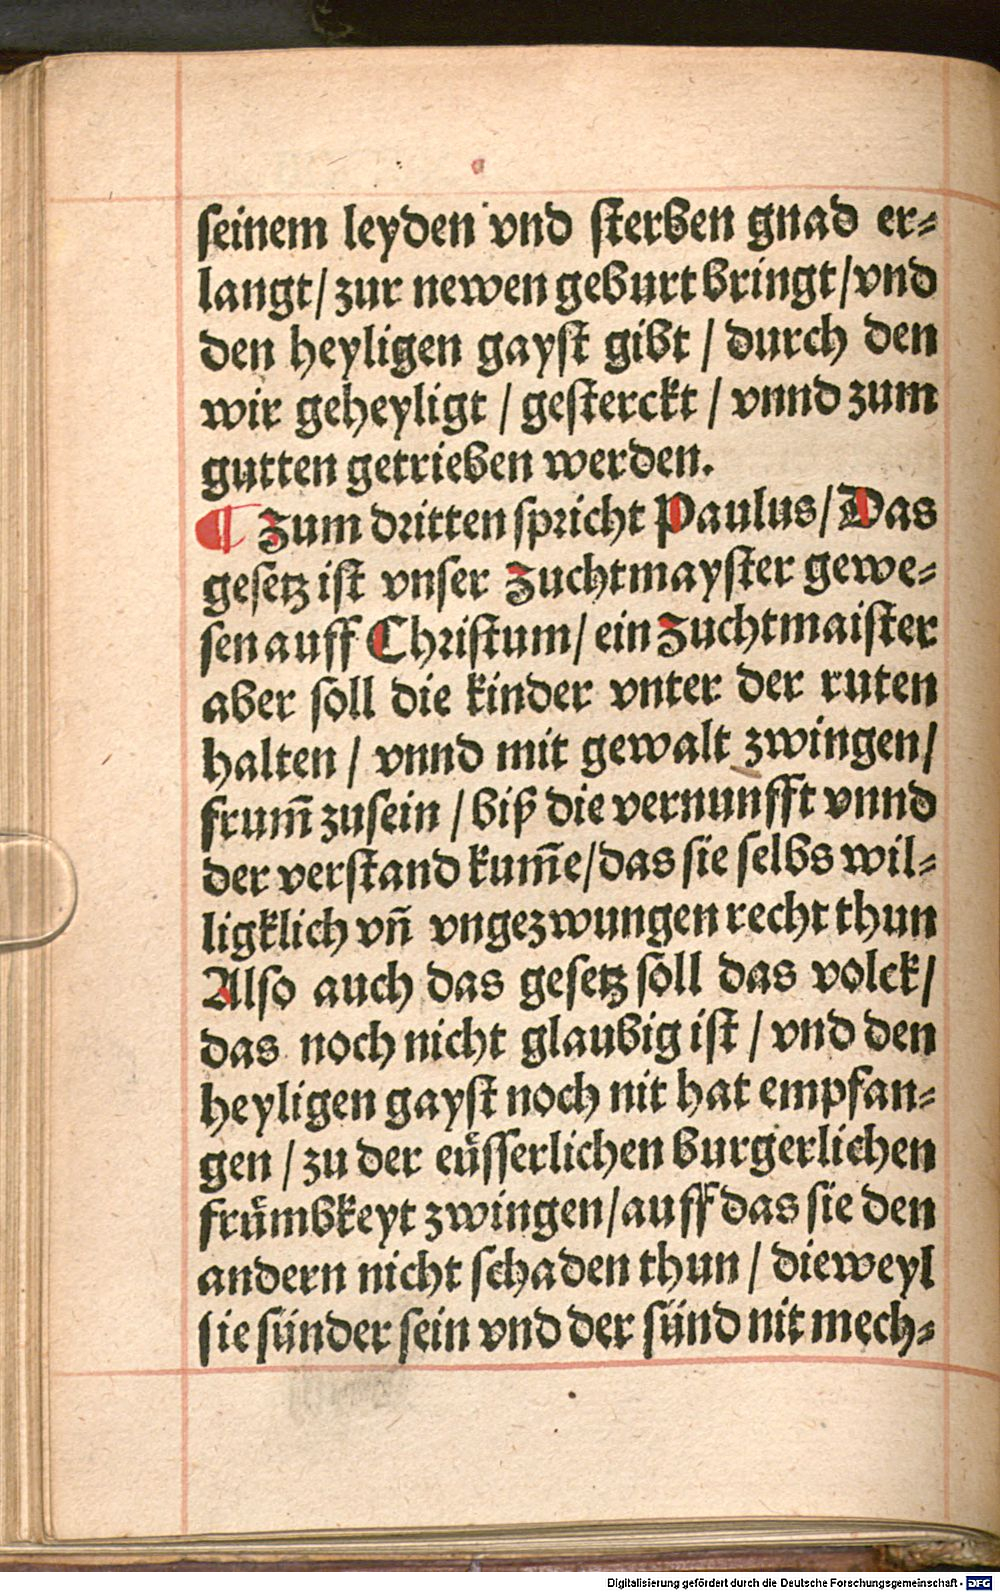 seinem leyden vnd sterben gnad er⸗
langt/ zur newen geburt bringt/ vnd
den heyligen gayst gibt / durch den
wir geheyligt / gesterckt / vnnd zum
gutten getrieben werden.
¶ Zum dritten spricht Paulus/ Das
gesetz ist vnser Zuchtmayster gewe⸗
sen auff Christum/ ein Zuchtmaister
aber soll die kinder vnter der ruten
halten / vnnd mit gewalt zwingen/
frum̃ zusein / biß die vernunfft vnnd
der verstand kum̃e/ das sie selbs wil⸗
ligklich vñ vngezwungen recht thun
Also auch das gesetz soll das volck/
das noch nicht glaubig ist / vnd den
heyligen gayst noch nit hat empfan⸗
gen / zu der eüsserlichen burgerlichen
frümbkeyt zwingen/ auff das sie den
andern nicht schaden thun / dieweyl
sie sünder sein vnd der sünd nit mech⸗
Digitalisierung gefördert durch die Deutsche Forschungsgemeinschaft - DFG